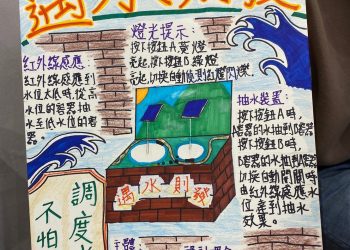 燈光提示:
按下按鈕A,黃燈
亮起,按下B,綠燈
亮起,切換自動偵測紅燈閃爍.
紅外線感應:
紅外線感應到
水位太低時,從高
水位的容器抽
水至低水位的容
器.
抽水裝置:
按下按鈕A時,
A容器的水抽到B容器
按下按鈕B時,
B容器的水抽到A容器
切換自動開關時,
由紅外線感應水
位達到抽水
效果.
遇水則發
調度
不怕